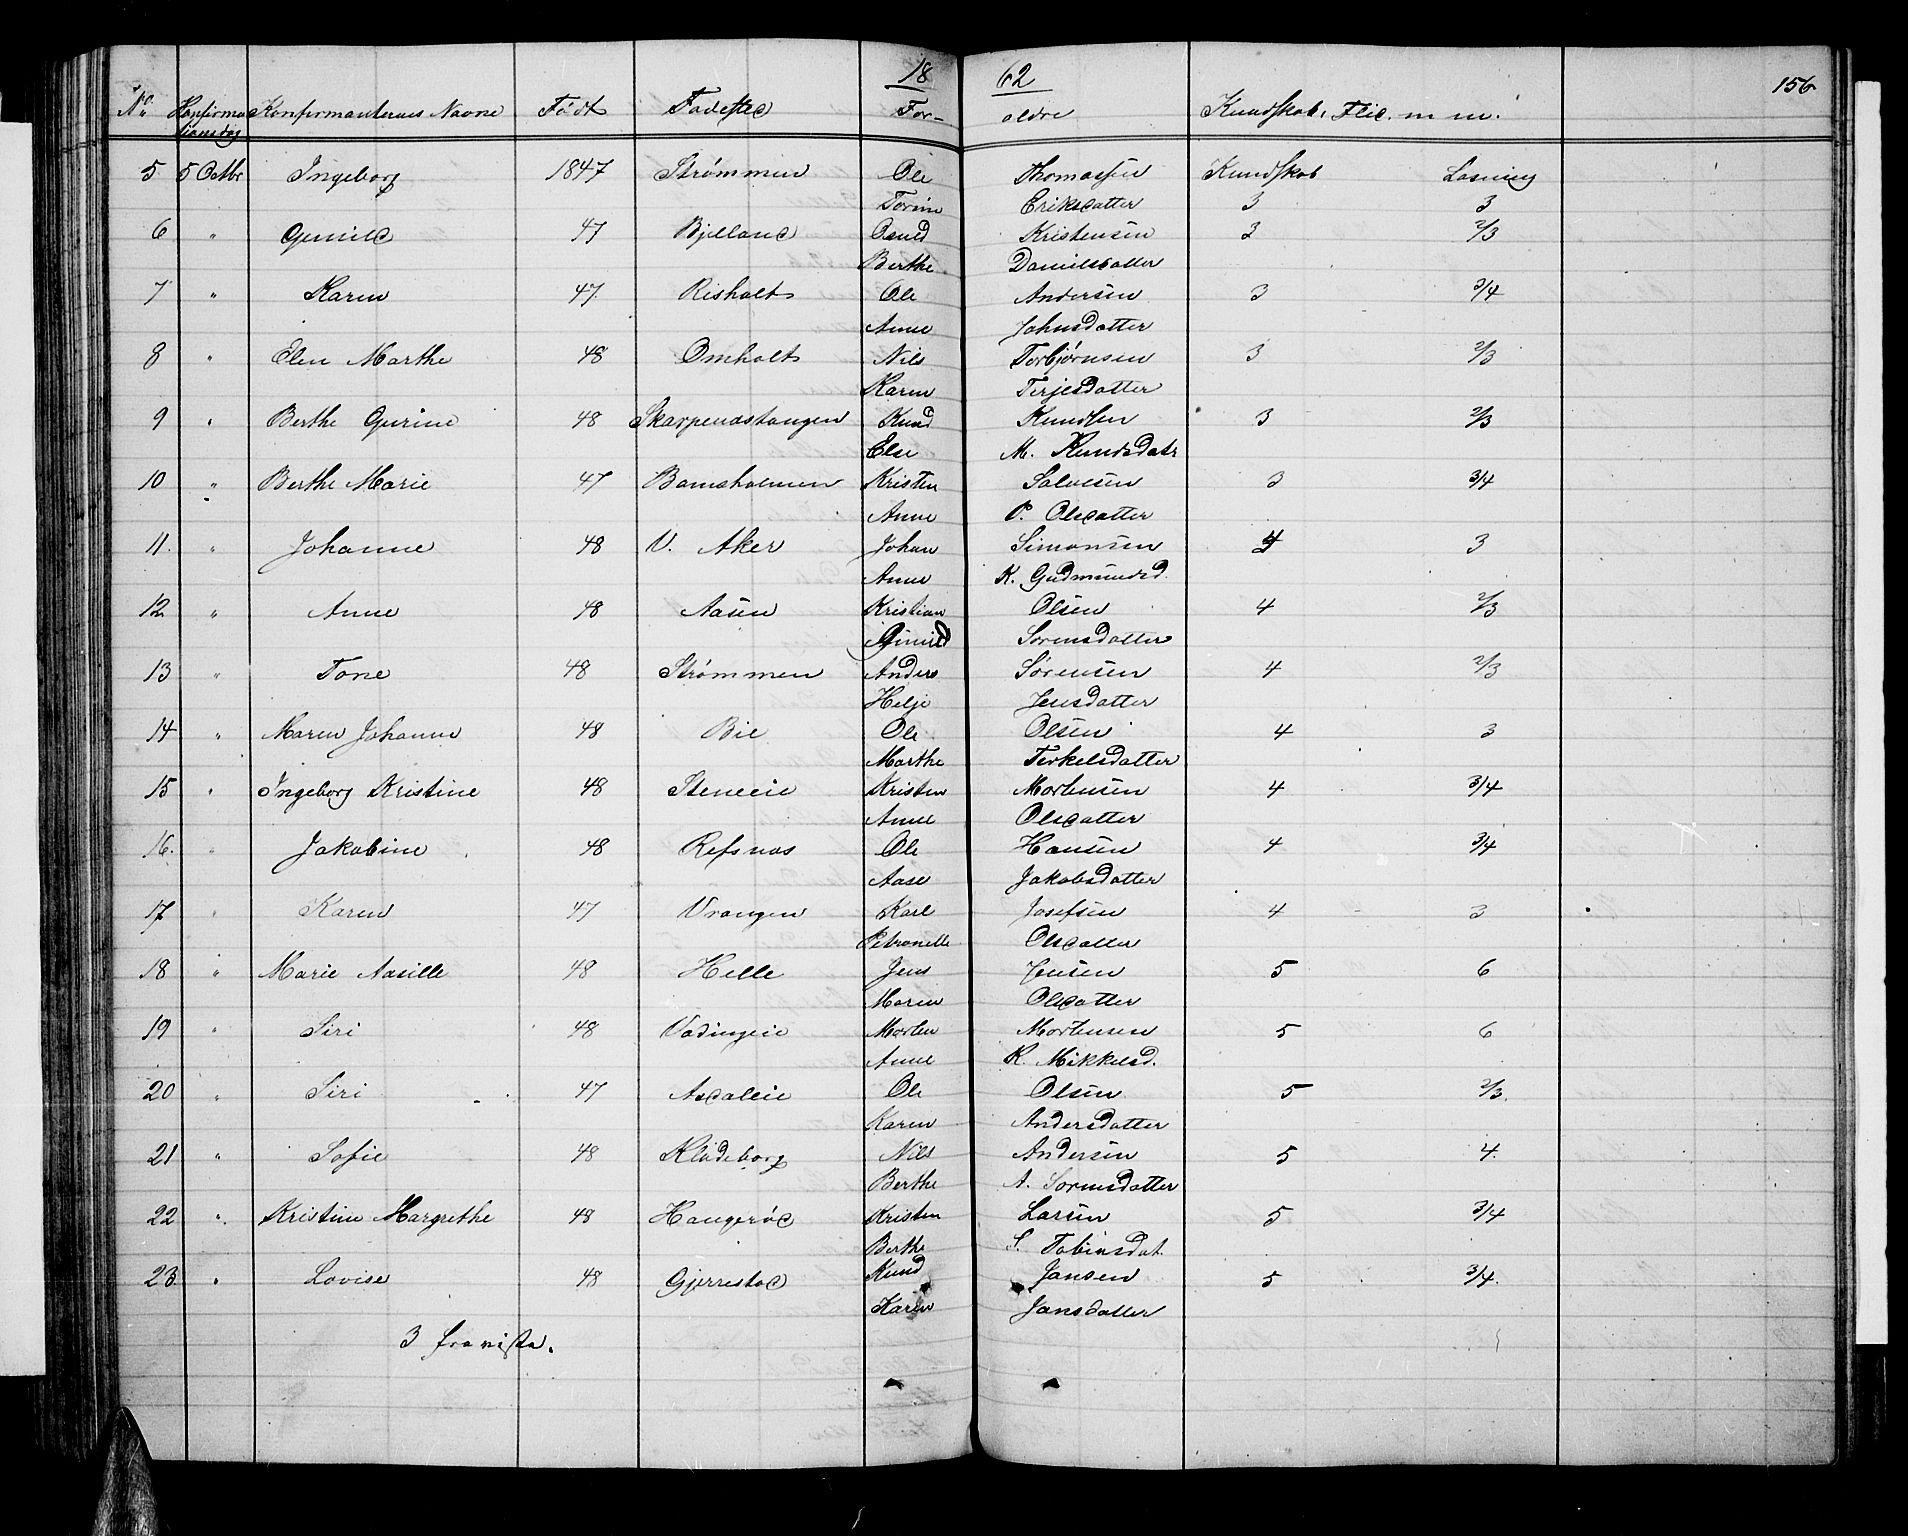 18 62 156
No. Konfirmationsdag Konfirmanternes Navne Född Födested For- ældre Kundskab, Flid m m.
5 5 Octbr Ingeborg 1847 Strømmen Ole Thomassen Kundskab Læsning
Torine Eriksdatter 3 3
6 " Gunild 47 Bjelland Osuld Kristensen 3 2/3
Berthe Danielsdatter
7 " Karen 47. Risholt Ole Andersen 3 3/4
Anne Johnsdatter
8 " Elen Marthe 48 Omholt Nils Torbjørnsen 3 2/3
Karen Terjesdatter
9 " Berthe Gurine 48 Skarpendstangen Knud Knudsen 3 2/3
Else M. Knudsdatr
10 " Berthe Marie 47 Bamseholmen Kristen Salvesen 3 3/4
Anne P. Olsdatter
11. " Johanne 48 V. Aker Johan Simonsen 4 3
Anne K. Gudmundsd.
12 " Anne 48 Aasen Kristian Olsen 4 2/3
Gunild Sørensdatter
13 " Tone 48 Strømmen Anders Sørensen 4 2/3
Helje Jensdatter
14 " Maren Johanne 48 Bie Ole Olsen 4 3
Marthe Terkelsdatter
15 " Ingeborg Kristine 48 Steneeie Kristen Mortensen 4 3/4
Anne Olsdatter
16. " Jakobine 48 Refsnæs Ole Hansen 4 3/4
Aase Jakobsdatter
17 " Karen 47 Vrangen Karl Josefsen 4 3
Petronelle Olsdatter
18 " Marie Aasille 48 Helle Jens Jensen 5 6
Maren Olsdatter
19 " Siri 48 Vadingeie Morten Mortensen 5 6
Anne K. Mikkelsd.
20 " Siri 47 Asdaleie Ole Olsen 5 2/3.
Karen Andersdatter
21 " Sofie 48 Klodeborg Nils Andersen 5 4.
Berthe A. Sørensdatter
22 " Kristine Margrethe 48 Haugerød Kristen Larsen 5 3/4
Berthe S. Tobiasdat.
23 " Lovise 48 Gjerrestad Knud Jansen 5 3/4.
Karen Jansdatter
3 fra